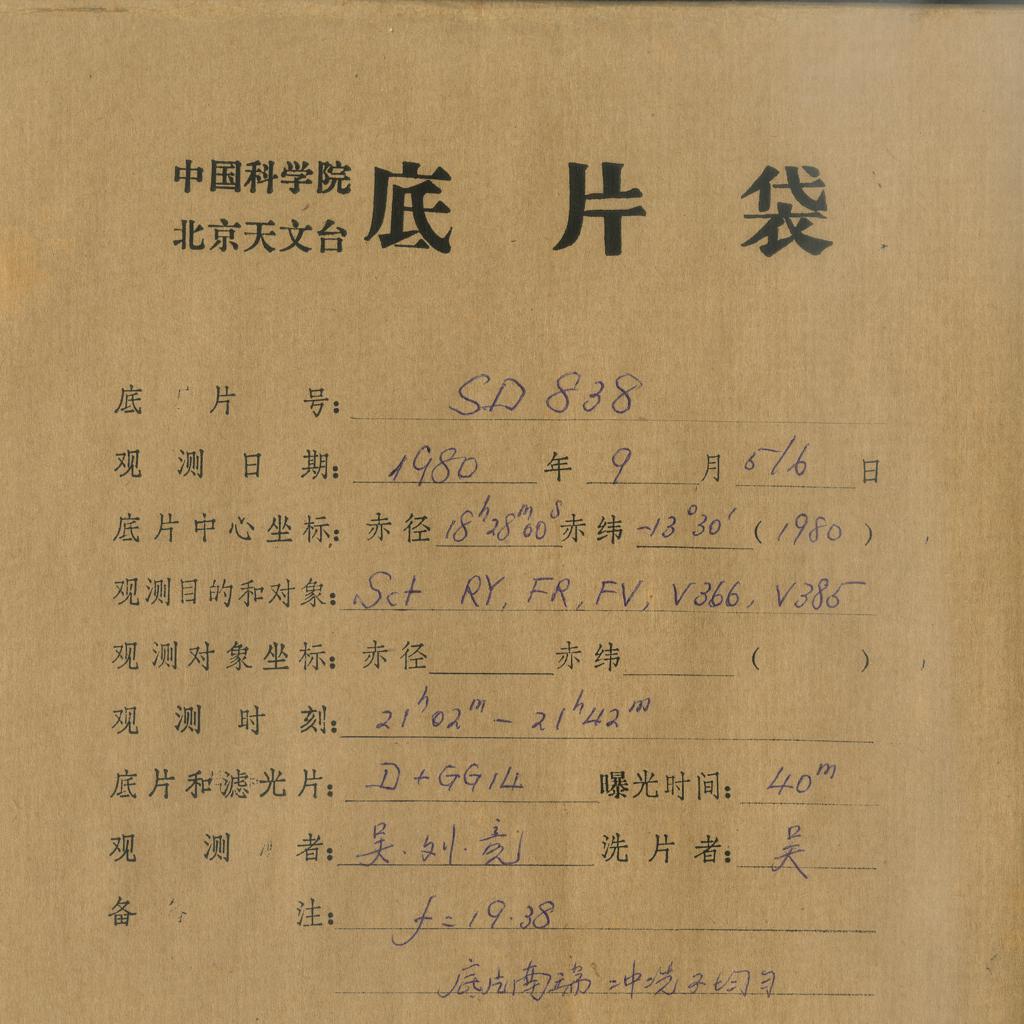 中国科学院
北京天文台
底片袋
底片号: SD 838
观测日期: 1980 年 9 月 5/6 日
底片中心坐标: 赤径 18ʰ28ᵐ00ˢ 赤纬 -13°30′ (1980)
观测目的和对象: Sct RY, FR, FV, V366, V385
观测对象坐标: 赤径 赤纬 ( )
观测时刻: 21ʰ02ᵐ - 21ʰ42ᵐ
底片和滤光片: D + GG14 曝光时间: 40ᵐ
观测者: 吴.刘.竞 洗片者: 吴
备注: f = 19.38
底片南端冲洗不均匀